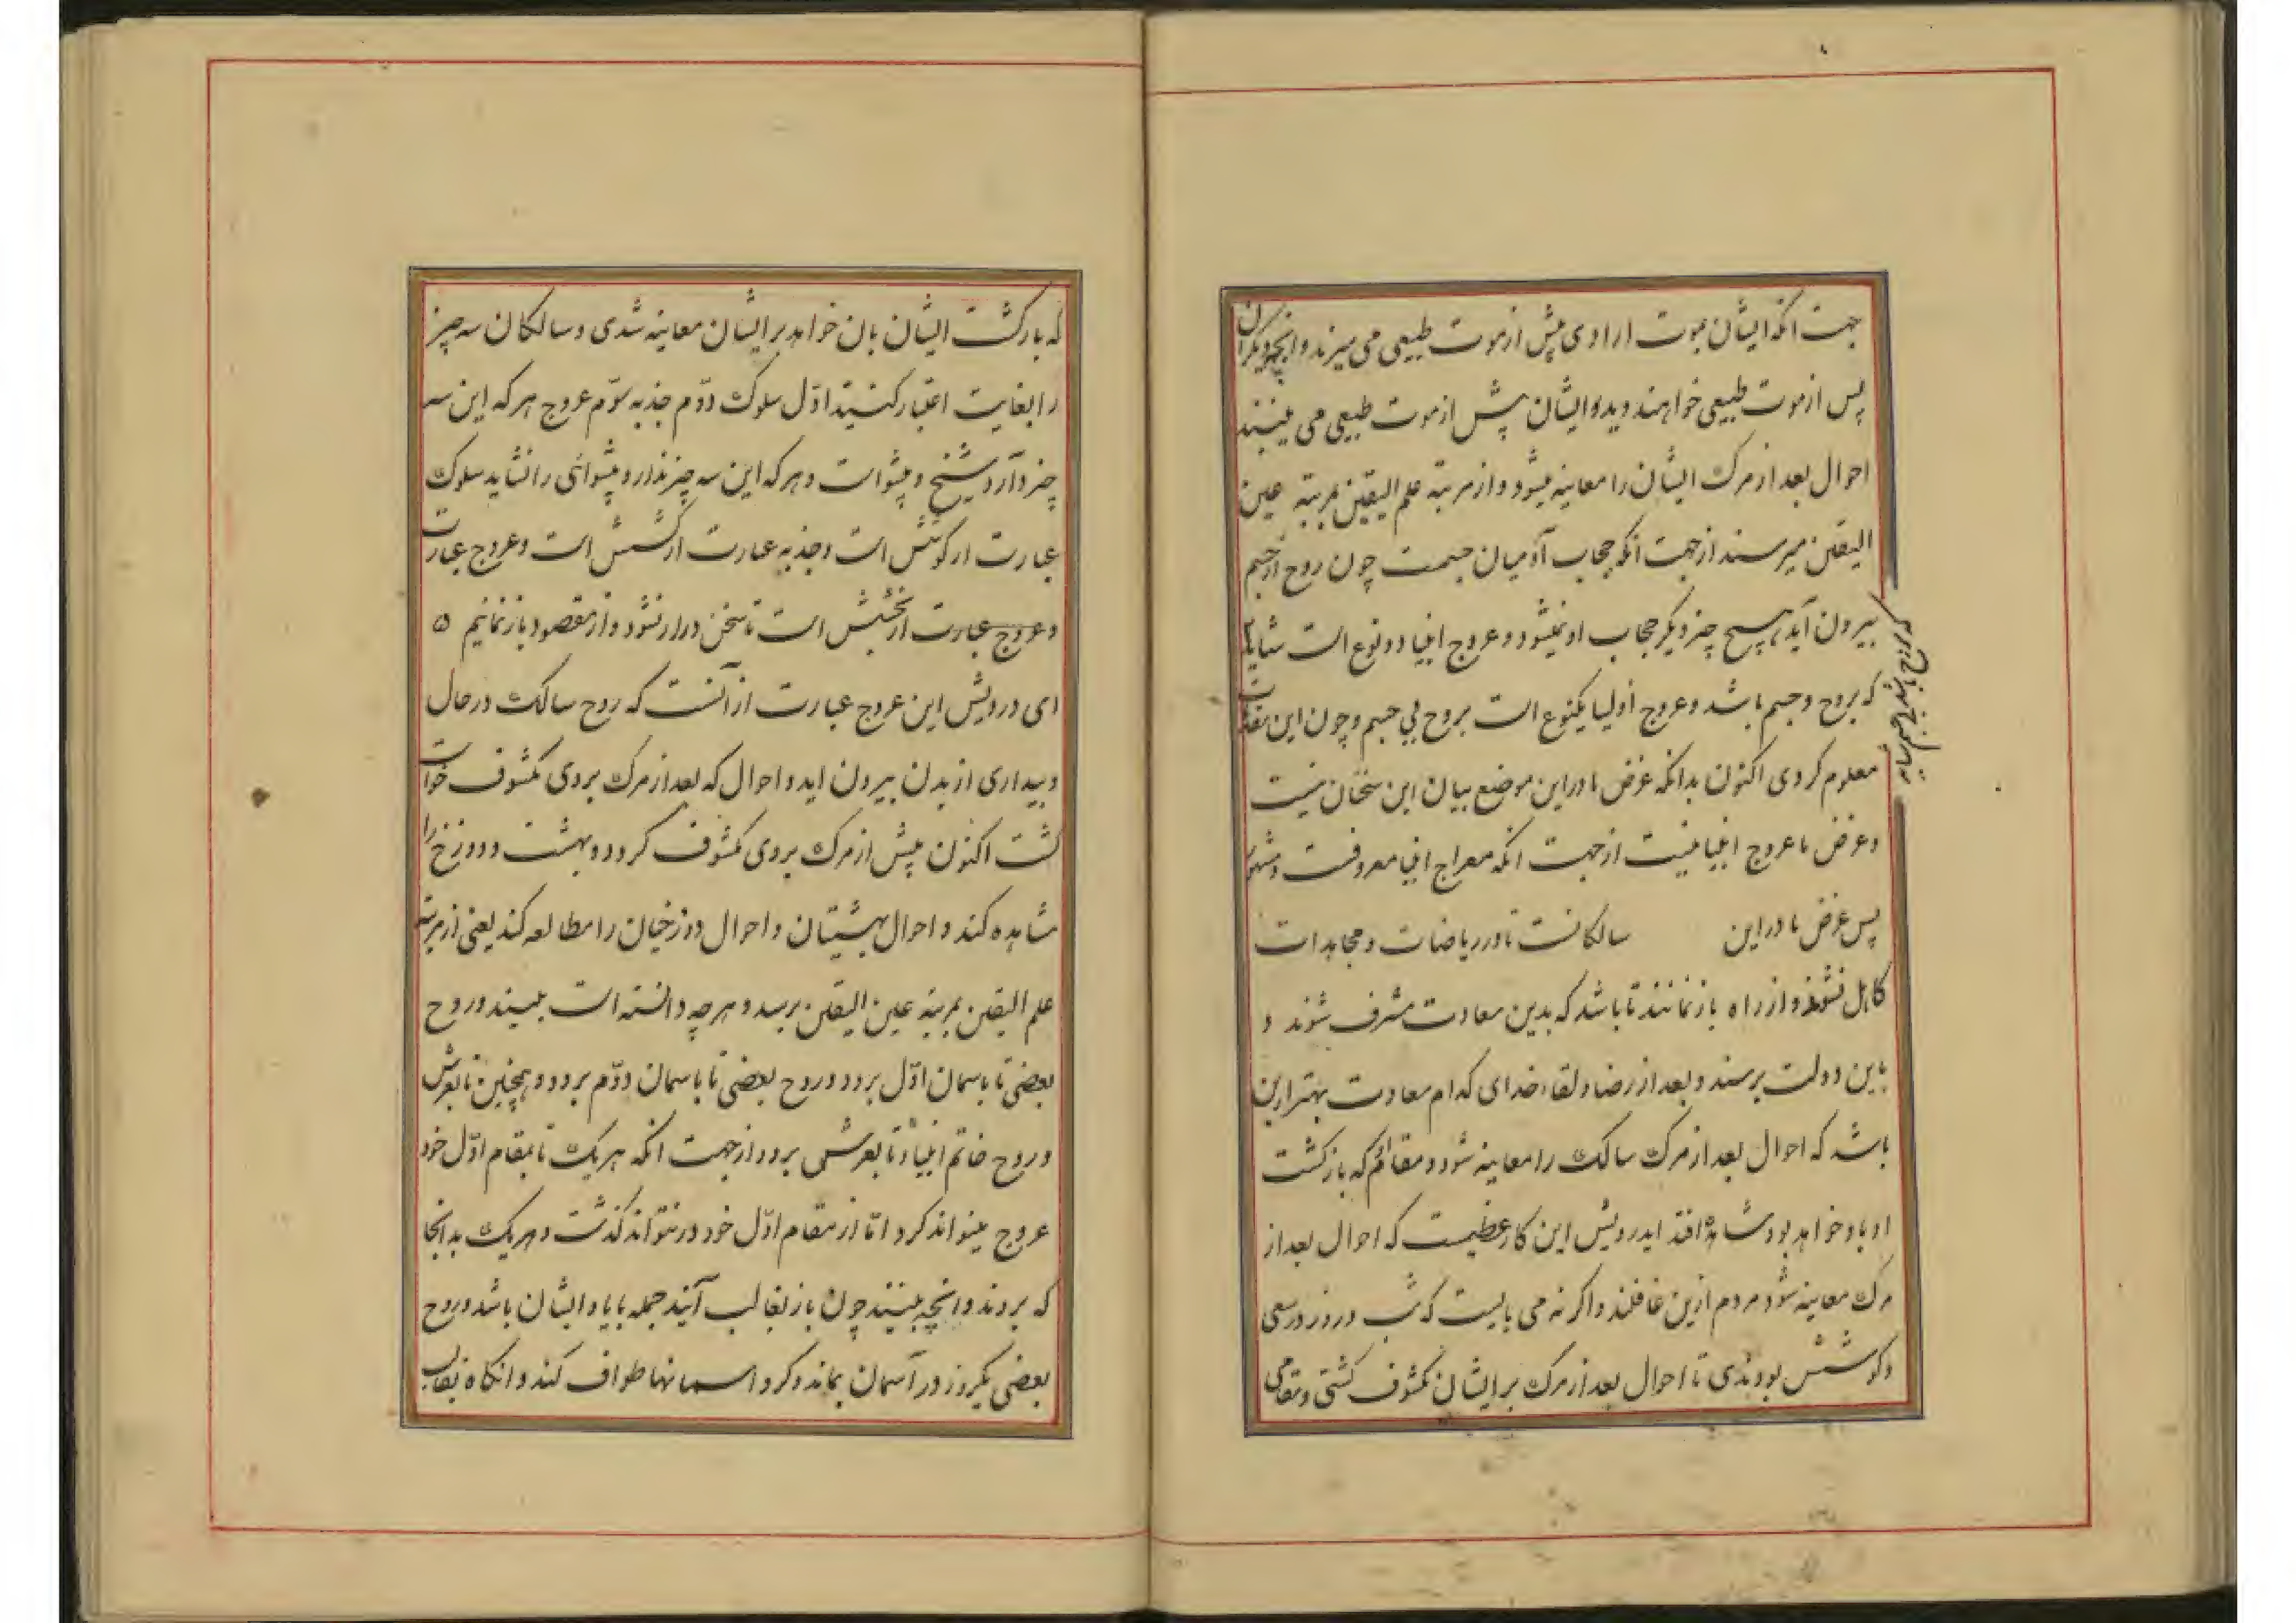 جهت انکه ایشان بموت ارادی پیش از موت طبیعی می میرند و انچه دیکران
پس از موت طبیعی خواهند دید ایشان پیش از موت طبیعی می بینند
احوال بعد از مرک ایشان را معاینه میشود و از مرتبه علم الیقین بمرتبه عین
الیقین میرسند از جهت انکه حجاب آدمیان جسمست چون روح از جسم
بیرون آید هیچ چیز دیکر حجاب او نمیشود و عروج انبیا دو نوع است شاید
که بروح و جسم باشد و عروج اولیا یکنوع است بروح بی جسم و چون این مقدمات
معلوم کردی اکنون بدانکه غرض ما در این موضع بیان این سخنان نیست
و غرض ما عروج انبیا نیست از جهت انکه معراج انبیا معروفست و مشهور
پس غرض ما در این سالکانست تا در ریاضات و مجاهدات
کاهل نشوند و از راه باز نمانند تا باشد که بدین سعادت مشرف شوند و
باین دولت برسند و بعد از رضا و لقاء خدای کدام سعادت بهتر ازین
باشد که احوال بعد از مرک سالک را معاینه شود و مقام که باز کشت
او باو خواهد بود مشاهده افتد ایدرویش این کار عظیمست که احوال بعد از
مرک معاینه شود مردم ازین غافلند و اکر نه می بایست که شب و روز در سعی
و کوشش بودندی تا احوال بعد از مرک بر ایشان مکشوف کشتی و مقامی
که بازکشت ایشان بان خواهد بر ایشان معاینه شدی و سالکان سه چیز
را بغایت اعتبار کنند اوّل سلوک دوّم جذبه سوّم عروج هر که این سه
چیز دارد شیخ و پیشواست و هر که این سه چیز ندارد پیشوائی را نشاید سلوک
عبارت از کوشش است و جذبه عبارت از کشش است و عروج عبارت
و عروج عبارت از بخشش است تا سخن دراز نشود و از مقصود باز نمانیم ۵
ای درویش این عروج عبارت از آنست که روح سالک در حال
و بیداری از بدن بیرون اید و احوال که بعد از مرک بروی مکشوف خواست
کشت اکنون پیش از مرک بروی مکشوف کردد و بهشت و دوزخ را
مشاهده کند و احوال بهشتیان و احوال دوزخیان را مطالعه کند یعنی از مرتبه
علم الیقین بمرتبه عین الیقین برسد و هر چه دانسته است ببیند و روح
بعضی تا باسمان اوّل برود و روح بعضی تا باسمان دوّم برود و همچنین تا بعرش
و روح خاتم انبیا تا بعرش برود از جهت انکه هر یک تا بمقام اوّل خود
عروج میتواند کرد امّا از مقام اوّل خود در نتواند کذشت و هر یک بدانجا
که بروند و انچه ببینند چون باز بقالب آیند جمله با یاد ایشان باشد و روح
بعضی یکروز در آسمان بماند و کرد اسمانها طواف کند و انکاه بقالب